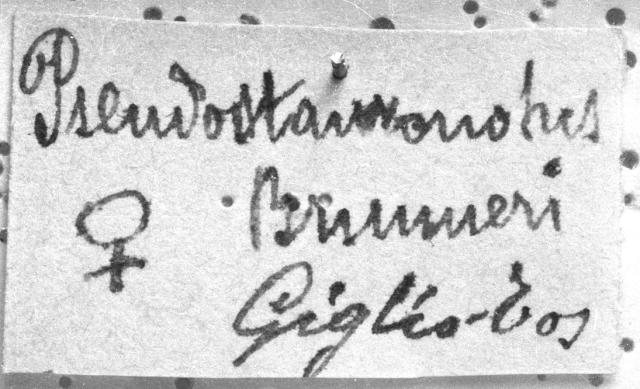 Pseudostauronotus
♀ Brunneri
Giglio-Tos